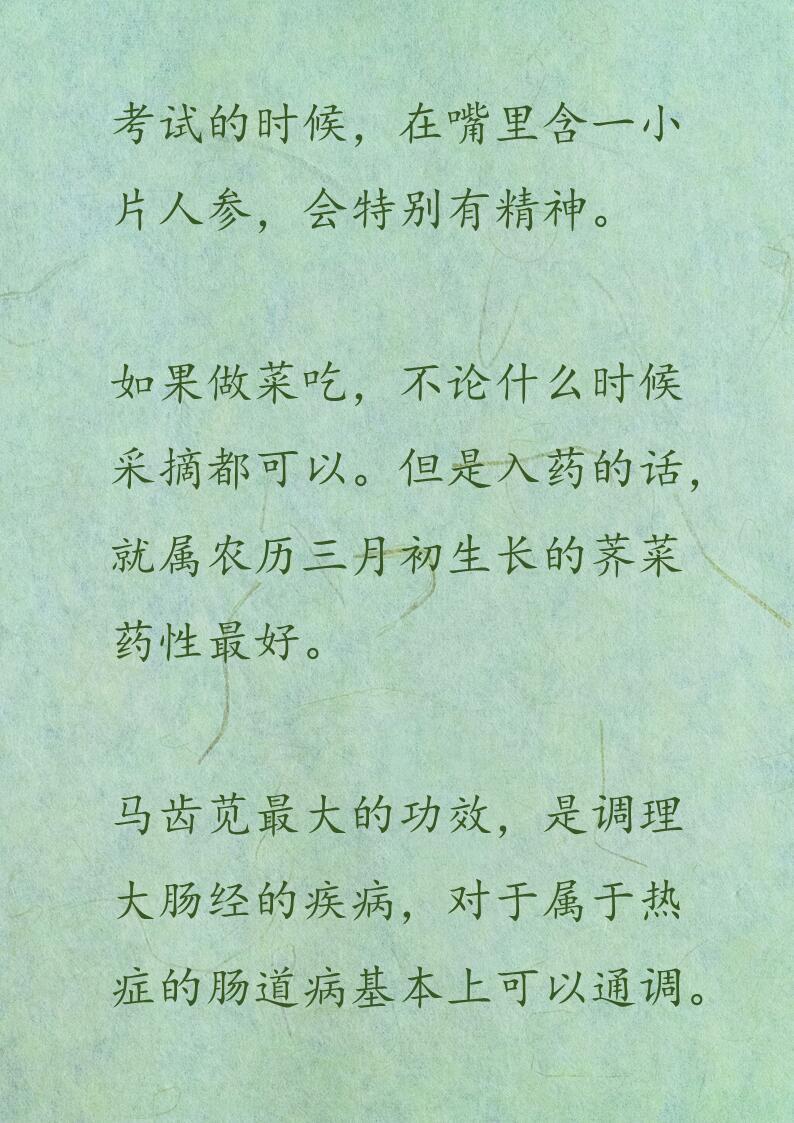 考试的时候，在嘴里含一小
片人参，会特别有精神。
如果做菜吃，不论什么时候
采摘都可以。但是入药的话，
就属农历三月初生长的荠菜
药性最好。
马齿苋最大的功效，是调理
大肠经的疾病，对于属于热
症的肠道病基本上可以通调。